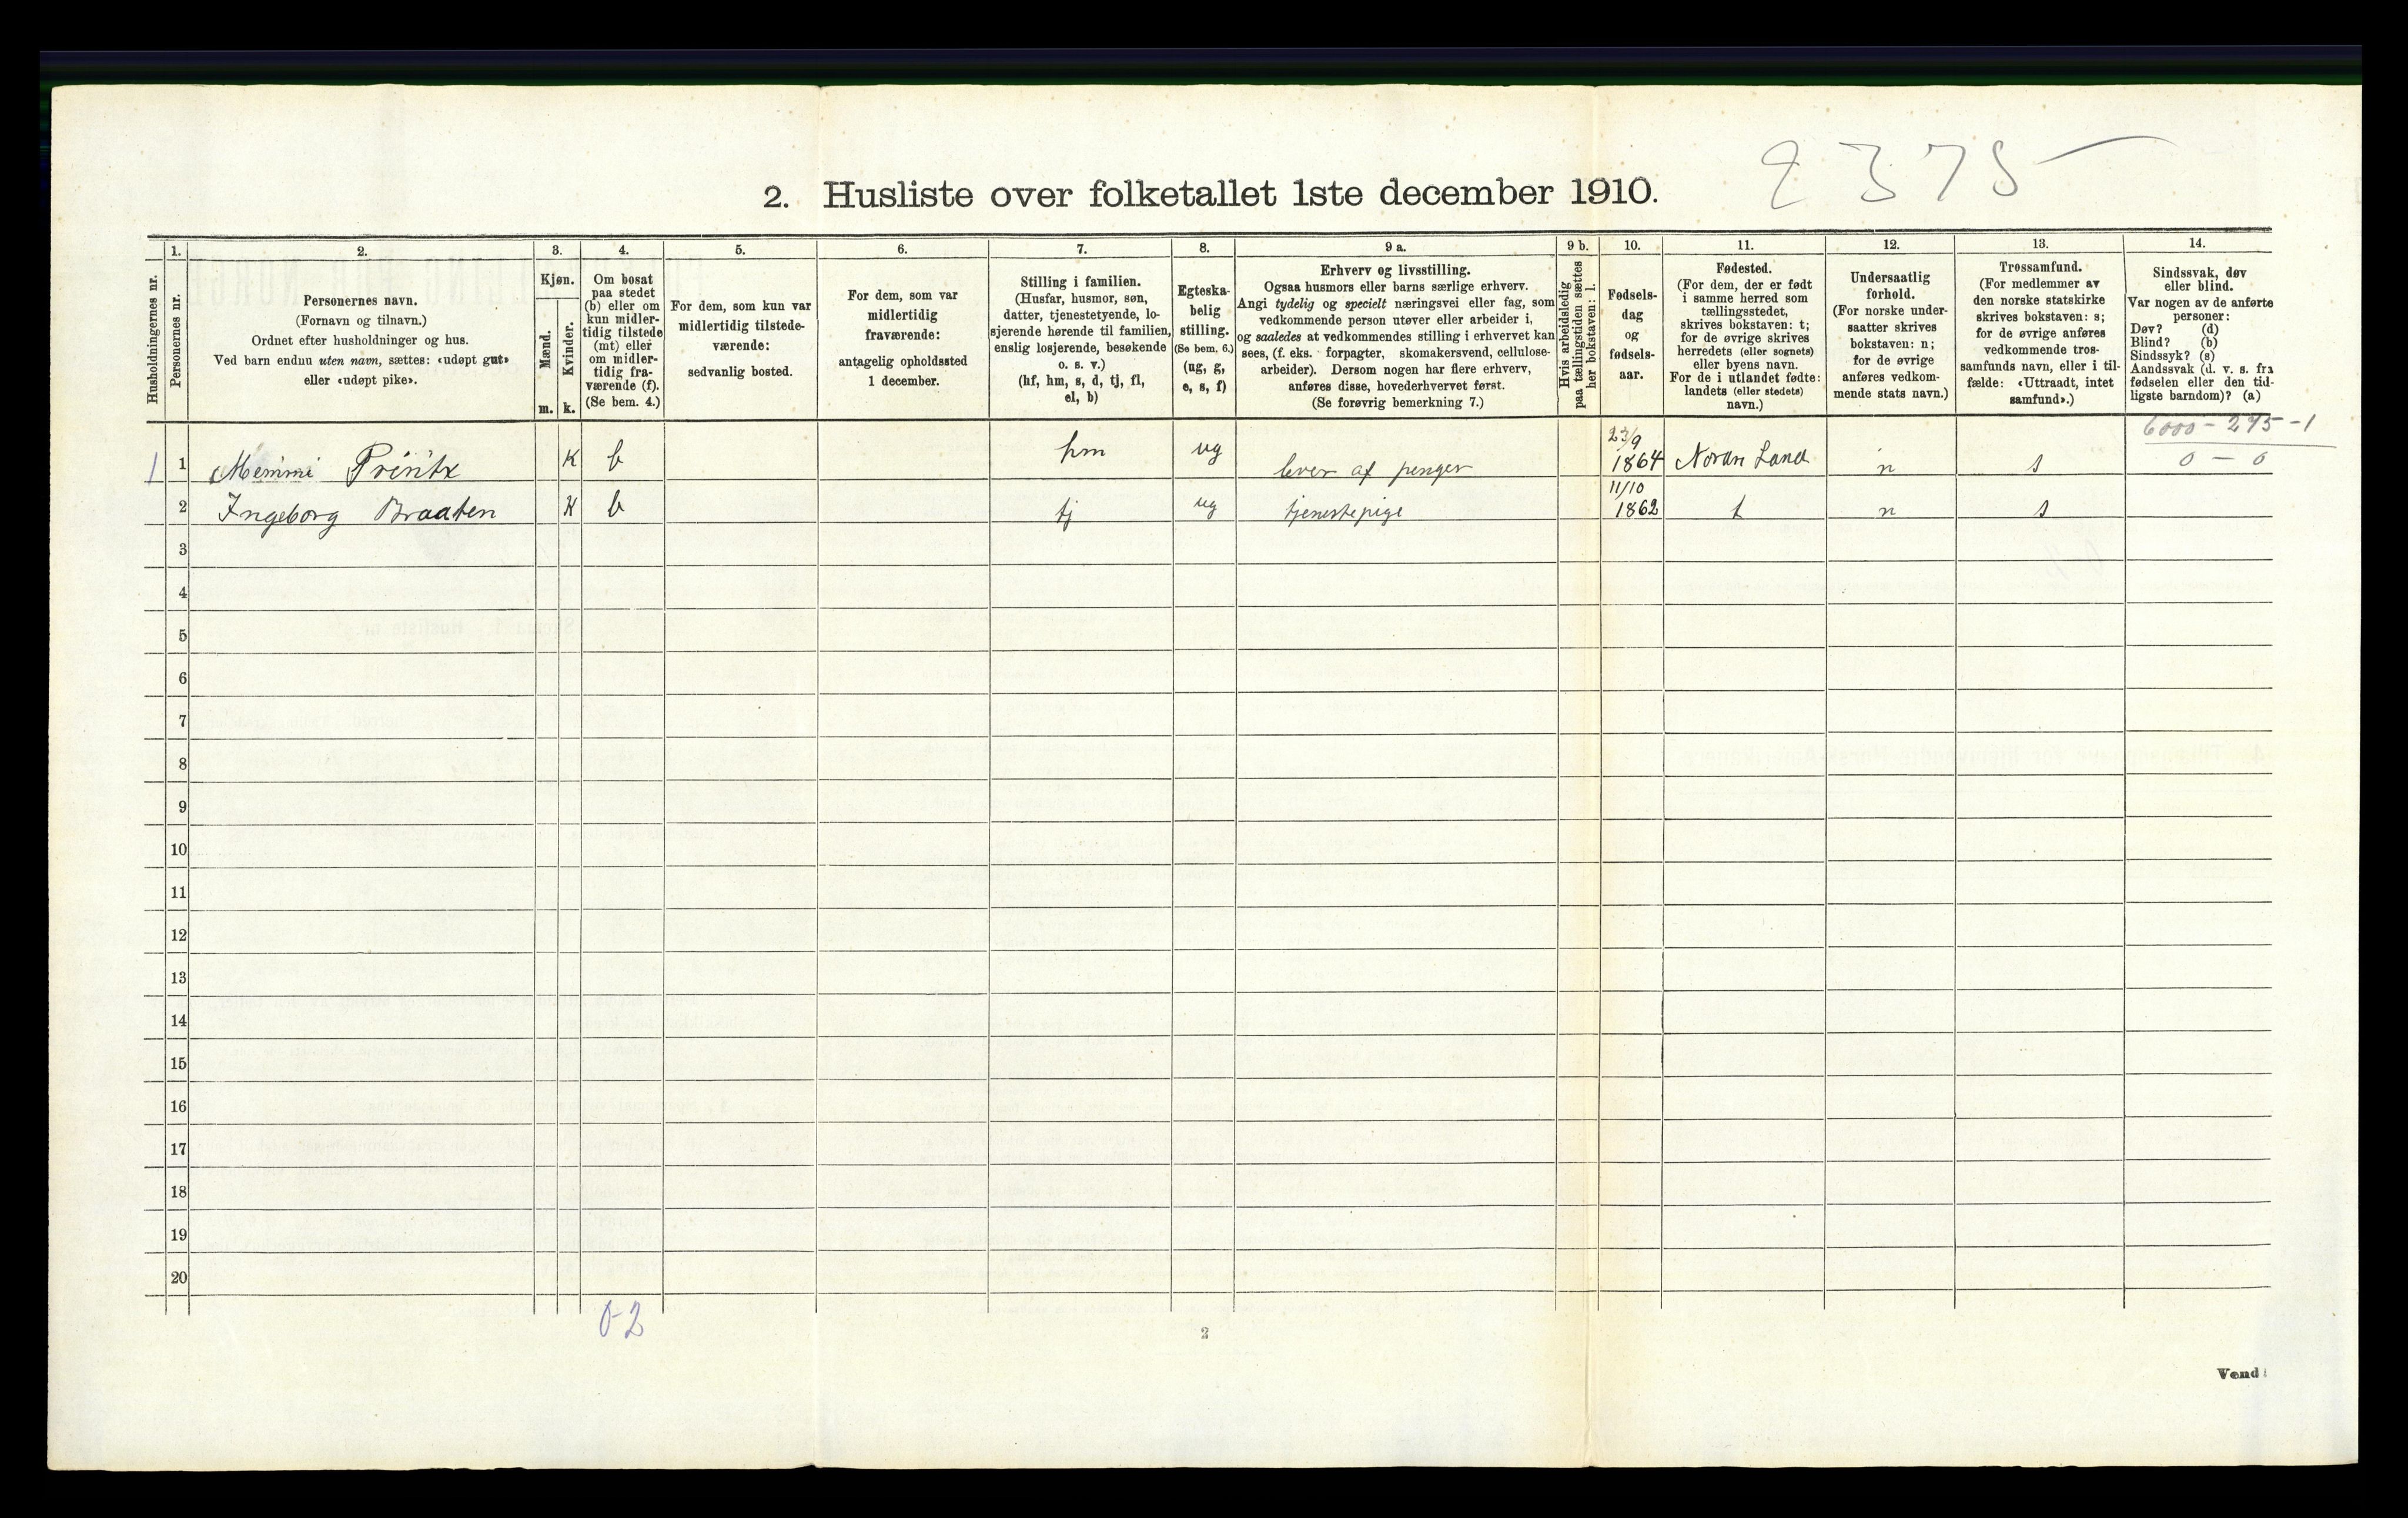 2375
2. Husliste over folketallet 1ste december 1910.
Husholdningernes nr.
1.
Personernes nr.
2.
Personernes navn.
(Fornavn og tilnavn.)
Ordnet efter husholdninger og hus.
Ved barn endnu uten navn, sættes: «udøpt gut»
eller «udøpt pike».
3.
Kjøn.
Mænd.
Kvinder.
m. k.
4.
Om bosat
paa stedet
(b) eller om
kun midler-
tidig tilstede
(mt) eller
om midler-
tidig fra-
værende (f).
(Se bem. 4.)
5.
For dem, som kun var
midlertidig tilstede-
værende:
sedvanlig bosted.
6.
For dem, som var
midlertidig
fraværende:
antagelig opholdssted
1 december.
7.
Stilling i familien.
(Husfar, husmor, søn,
datter, tjenestetyende, lo-
sjerende hørende til familien,
enslig losjerende, besøkende
o. s. v.)
(hf, hm, s, d, tj, fl,
el, b)
8.
Egteska-
belig
stilling.
(Se bem. 6.)
(ug, g,
e, s, f)
9 a.
Erhverv og livsstilling.
Ogsaa husmors eller barns særlige erhverv.
Angi tydelig og specielt næringsvei eller fag, som
vedkommende person utøver eller arbeider i,
og saaledes at vedkommendes stilling i erhvervet kan
sees, (f. eks. forpagter, skomakersvend, cellulose-
arbeider). Dersom nogen har flere erhverv,
anføres disse, hovederhvervet først.
(Se forøvrig bemerkning 7.)
9 b.
Hvis arbeidsledig
paa tællingstiden sættes
her bokstaven: l.
10.
Fødsels-
dag
og
fødsels-
aar.
11.
Fødested.
(For dem, der er født
i samme herred som
tællingsstedet,
skrives bokstaven: t;
for de øvrige skrives
herredets (eller sognets)
eller byens navn.
For de i utlandet fødte:
landets (eller stedets)
navn.)
12.
Undersaatlig
forhold.
(For norske under-
saatter skrives
bokstaven: n;
for de øvrige
anføres vedkom-
mende stats navn.)
13.
Trossamfund.
(For medlemmer av
den norske statskirke
skrives bokstaven: s;
for de øvrige anføres
vedkommende tros-
samfunds navn, eller i til-
fælde: «Uttraadt, intet
samfund».)
14.
Sindssvak, døv
eller blind.
Var nogen av de anførte
personer:
Døv? (d)
Blind? (b)
Sindssyk? (s)
Aandssvak (d. v. s. fra
fødselen eller den tid-
ligste barndom)? (a)
6000 - 275 - 1
0 - 0
1 1 Memmi Printz K b hm ug lever af penger 23/9 1864 Nordre Land n s
2 Ingeborg Braaten K b tj ug tjenestepige 11/10 1862 t n s
3
4
5
6
7
8
9
10
11
12
13
14
15
16
17
18
19
20
0-2
2
Vend!